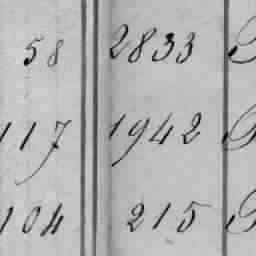 58 2833
117 1942
104 215